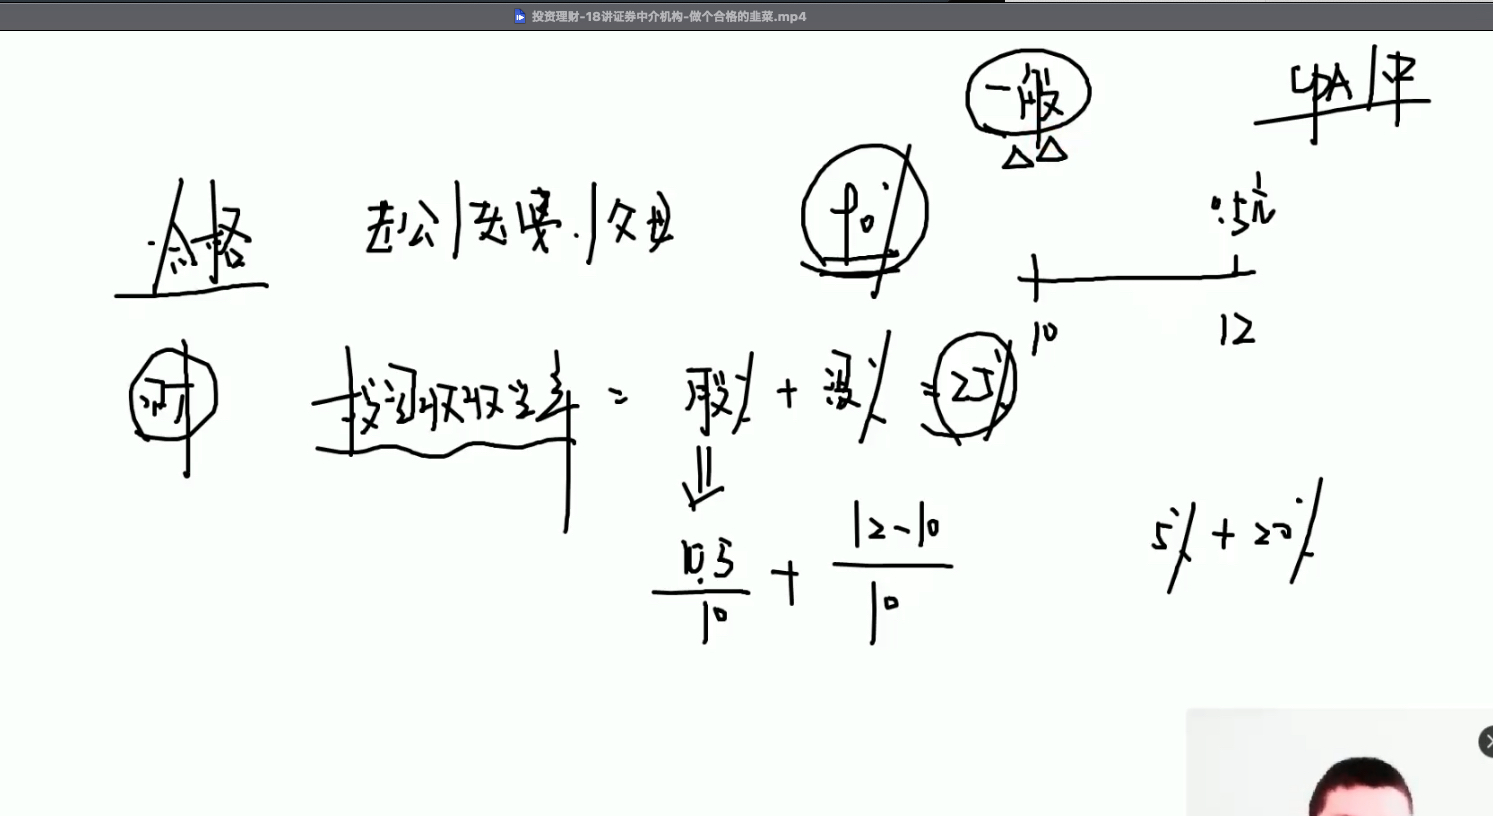 投资理财-18讲证券中介机构-做个合格的韭菜.mp4
一般
CPA
合格
老公|老婆.|父母
P0
.5元
10
12
投资收益率 = 股% + % = 25%
10.5/10 + 12-10/10
5% + 20%